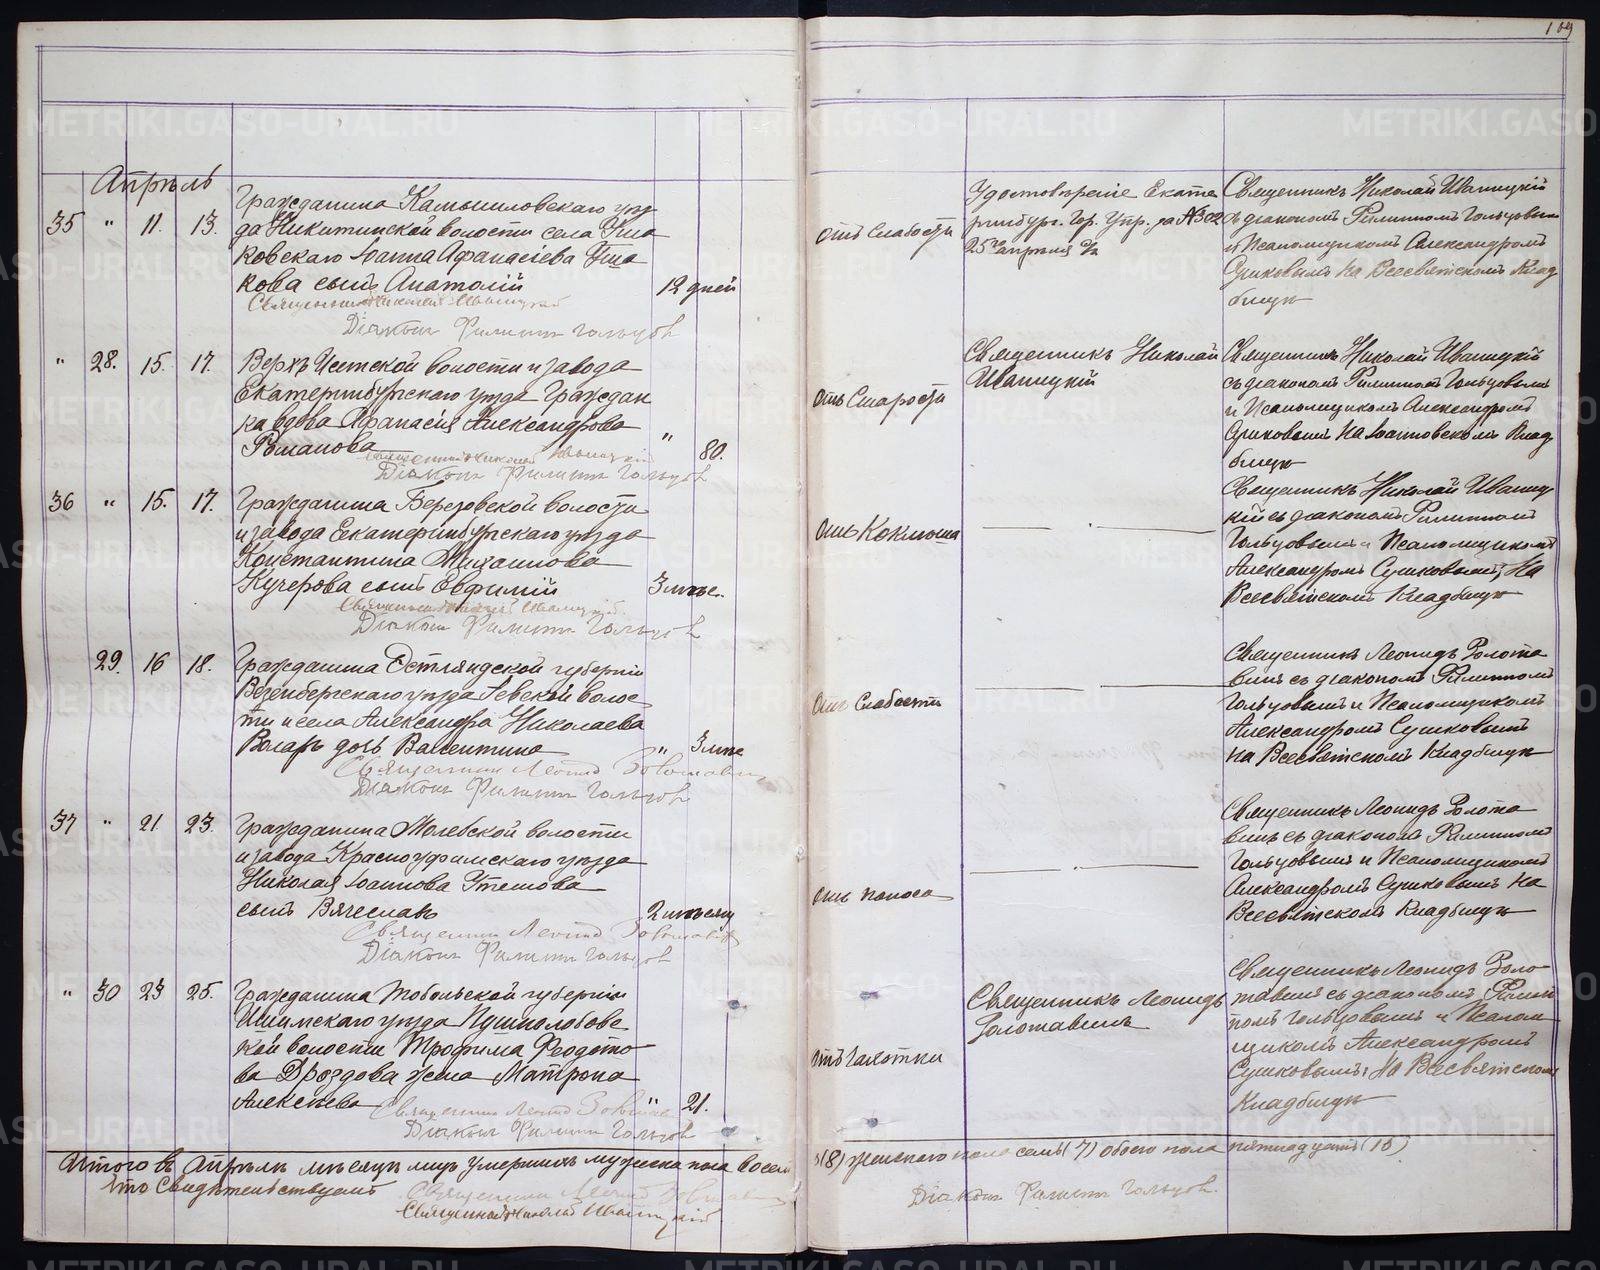 109
Апрѣль
35 " 11. 13. Гражданина Камышловскаго уѣз
да Никитинской волости села
ковскаго Іоанна Афанасіева
кова сынъ Анатолій 12 дней
Священникъ Николай Иваницкій
Діаконъ Филиппъ Гольцовъ
отъ слабости
Удостовѣреніе Екате
ринбург. Гор. Упр. за № 302
25го апрѣля с/г
Священникъ Николай Иваницкій
съ діакономъ Филиппомъ Гольцовым
и Псаломщикомъ Александромъ
Сушковымъ на Всесвятскомъ Клад
бищѣ
" 28. 15. 17. Верхъ Исетской волости и завода
Екатеринбургскаго уѣзда Граждан
ка вдова Афанасія Александрова
Романова " 80.
Священникъ Николай Иваницкій
Діаконъ Филиппъ Гольцовъ
отъ старости
Священникъ Николай
Иваницкій
Священникъ Николай Иваницкій
съ діакономъ Филиппомъ Гольцовымъ
и Псаломщикомъ Александромъ
Сушковымъ на Іоанновскомъ Клад
бищѣ
36 " 15. 17. Гражданина Березовской волости
и завода Екатеринбургскаго уѣзда
Константина Михаилова
Кучерова сынъ Евфимій 3 мѣс.
Священникъ Николай Иваницкій
Діаконъ Филиппъ Гольцовъ
отъ Коклюша
Священникъ Николай Иваниц
кій съ діакономъ Филиппомъ
Гольцовымъ и Псаломщикомъ
Александромъ Сушковымъ, На
Всесвятскомъ Кладбищѣ
29. 16 18. Гражданина Эстляндской губерніи
Везенбергскаго уѣзда волос
ти и села Александра Николаева
дочь Валентина " 3 мѣс
Священникъ Леонидъ Золотавинъ
Діаконъ Филиппъ Гольцовъ
отъ слабости
Священникъ Леонидъ Золота
винъ съ діакономъ Филиппомъ
Гольцовымъ и Псаломщикомъ
Александромъ Сушковымъ
на Всесвятскомъ Кладбищѣ
37 " 21 23. Гражданина Молебской волости
и завода Красноуфимскаго уѣзда
Николая Іоаннова Утешова
сынъ Вячеславъ 2 мѣсяц
Священникъ Леонидъ Золотавинъ
Діаконъ Филиппъ Гольцовъ
отъ поноса
Священникъ Леонидъ Золота
винъ съ діакономъ Филиппомъ
Гольцовымъ и Псаломщикомъ
Александромъ Сушковымъ на
Всесвятскомъ Кладбищѣ
" 30 23 25. Гражданина Тобольской губерніи
Ишимскаго уѣзда
кой волости Трофима Феодото
ва Дроздова жена Матрона
Алексѣева " 21.
Священникъ Леонидъ Золотавинъ
Діаконъ Филиппъ Гольцовъ
отъ чахотки
Священникъ Леонидъ
Золотавинъ
Священникъ Леонидъ Золо
тавинъ съ діакономъ Филип
помъ Гольцовымъ и Псалом
щикомъ Александромъ
Сушковымъ, На Всесвятском
Кладбищѣ
Итого въ Апрѣлѣ мѣсяцѣ лицъ умершихъ мужеска пола восем
ь (8) женскаго пола семь (7) обоего пола пятнадцать (15)
Что свидѣтельствуемъ Священникъ Леонидъ Золотавинъ
Священникъ Николай Иваницкій
Діаконъ Филиппъ Гольцовъ.
METRIKI.GASO-URAL.RU